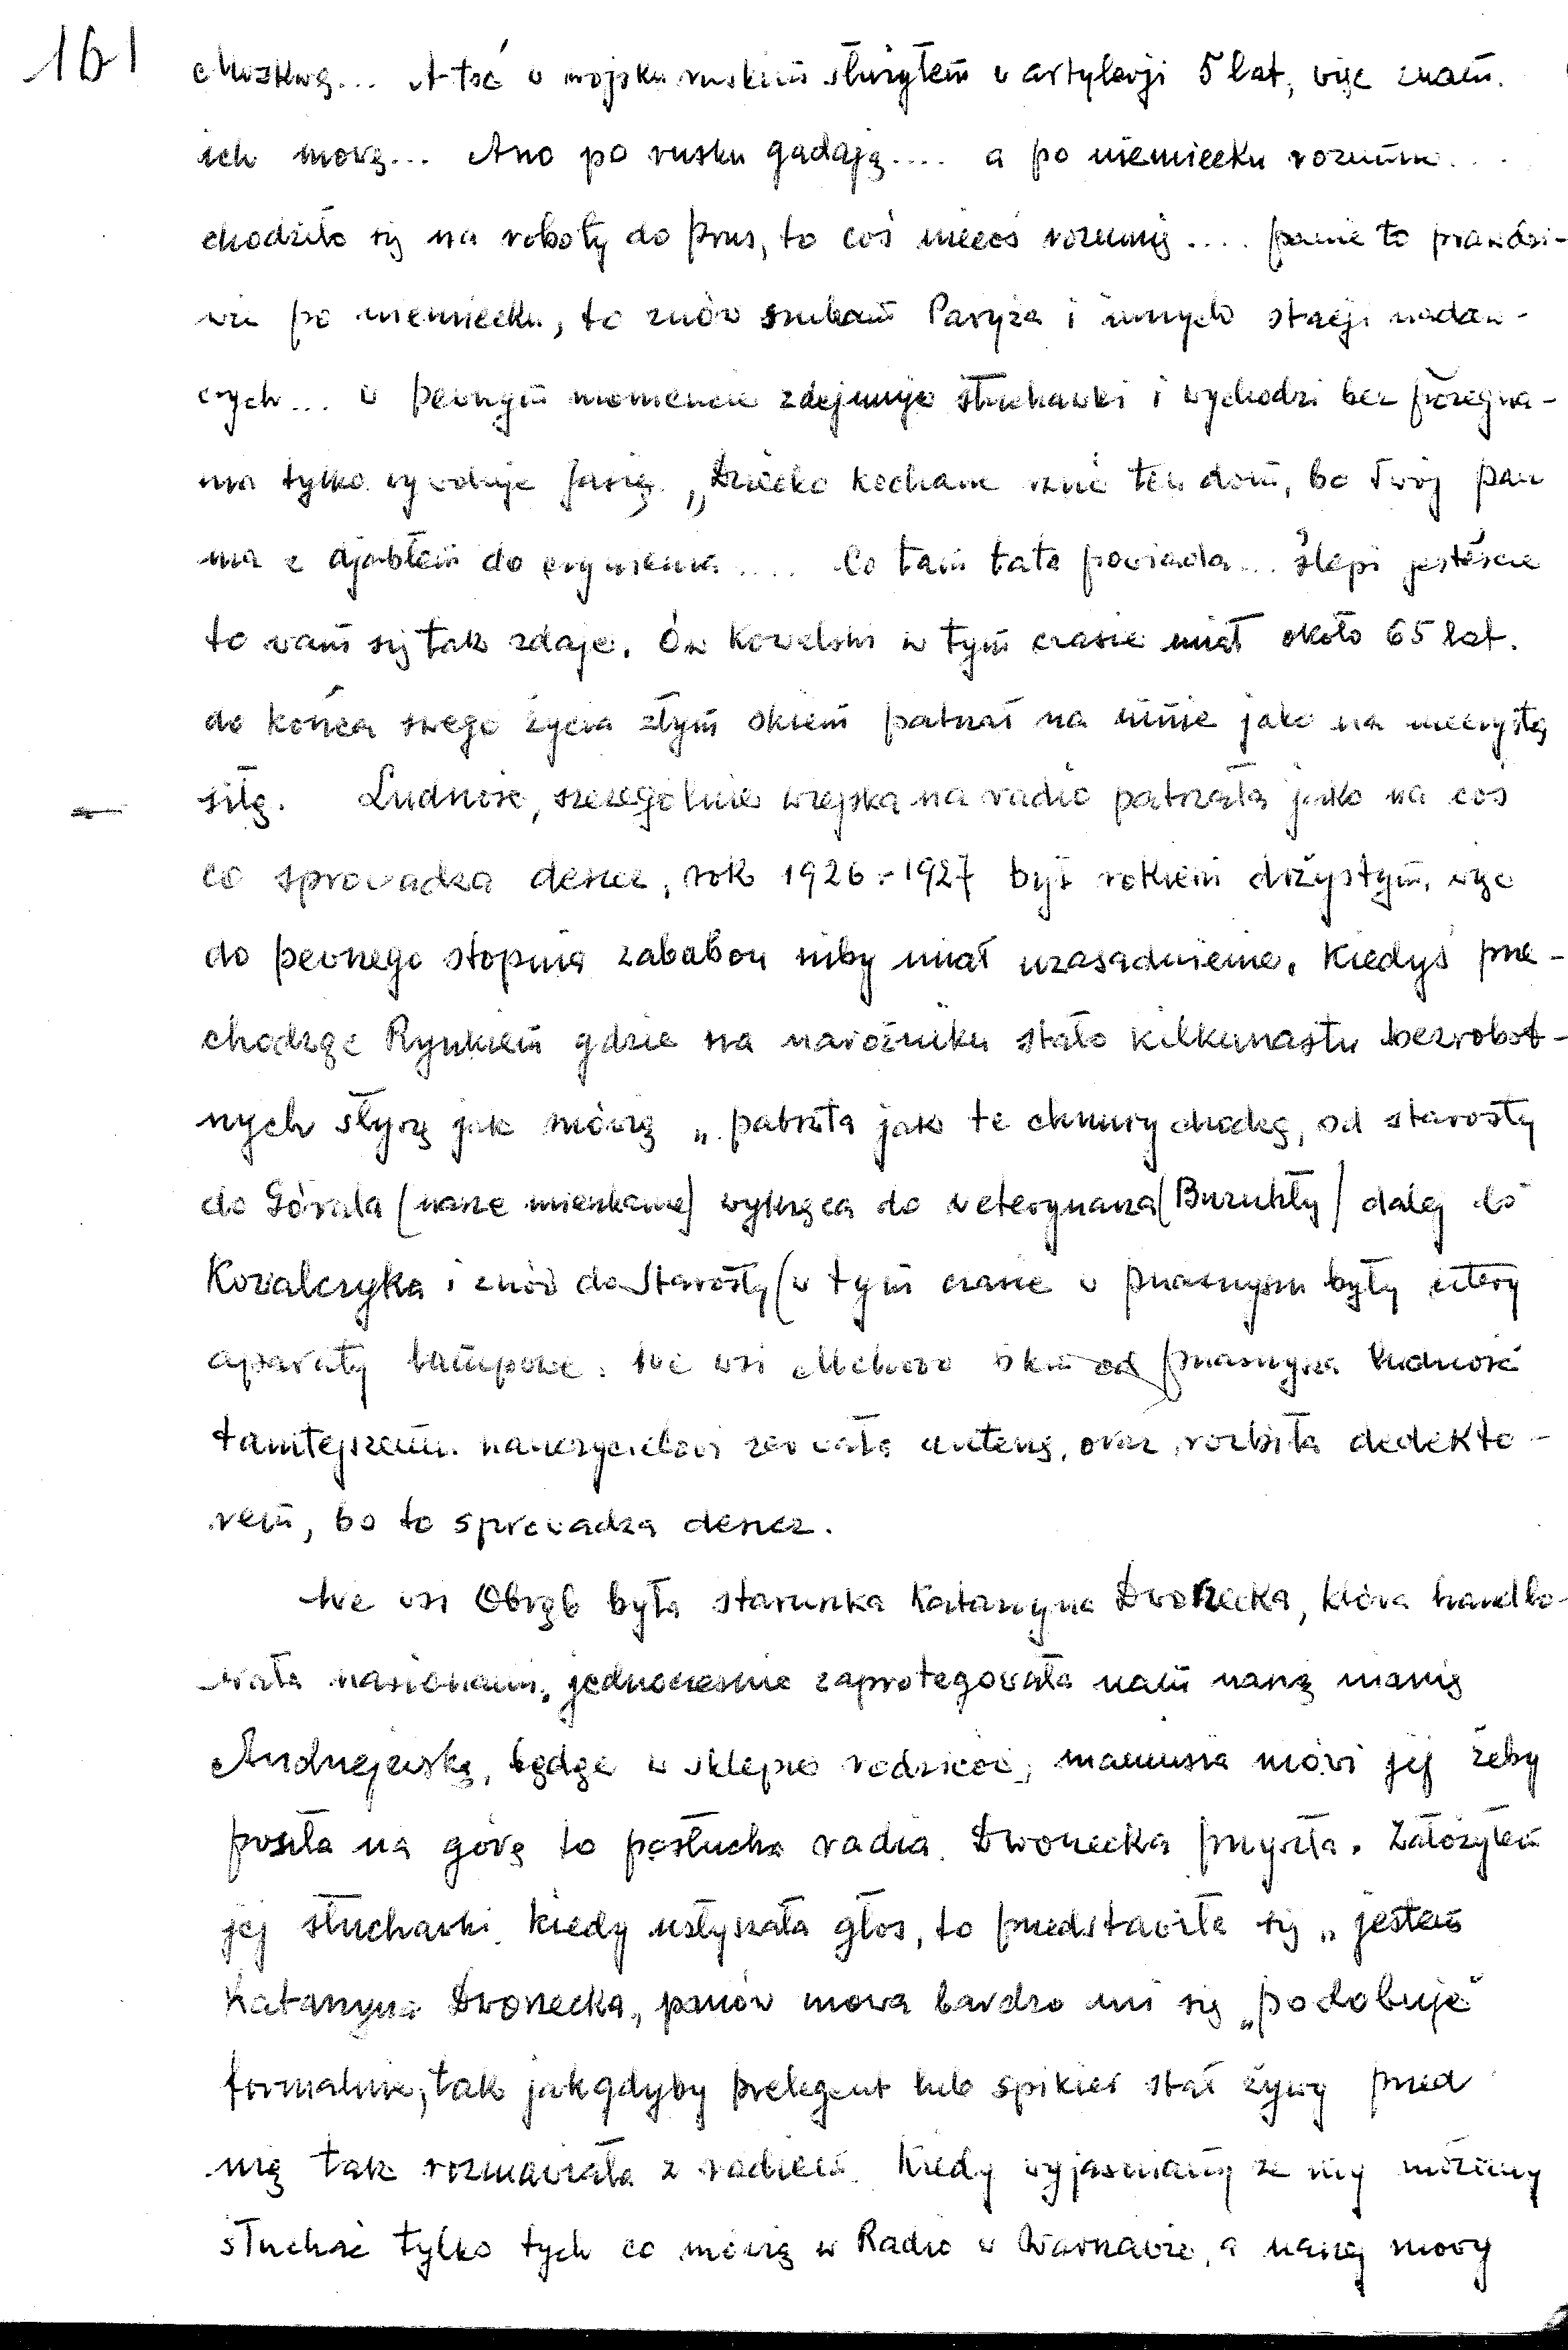 161
Moskwę... A toć w wojsku ruskim służyłem w artylerji 5 lat, więc znam
ich mowę... Ano po rusku gadają.... a po niemiecku rozumim...
chodziło się na roboty do Prus, to coś niecoś rozumię.... panie to prawdzi-
wie po niemiecku, to znów szukam Paryża i innych stacji nadaw-
czych... w pewnym momencie zdejmuje słuchawki i wychodzi bez pożegna-
nia tylko wywołuje Jasię „Dziecko kochane rzuć ten dom, bo Twój pan
ma z djabłem do czynienia.... Co tam tata powiada... ślepi jesteście
to wam się tak zdaje. Ów Kowalski w tym czasie miał około 65 lat.
do końca swego życia złym okiem patrzał na mnie jako na nieczystą
siłę. Ludność, szczególnie wiejska na radio patrzała jako na coś
co sprowadza deszcz, rok 1926-1927 był rokiem dżdżystym, więc
do pewnego stopnia zabobon niby miał uzasadnienie. Kiedyś prze-
chodzę Rynkiem gdzie na narożniku stało kilkunastu bezrobot-
nych słyszę jak mówią „patrzta jako te chmury chodzą, od starosty
do Górala (nasze mieszkanie) wykręca do weterynarza (Burukły) dalej do
Kowalczyka i znów do Starosty (w tym czasie w Przasnyszu były cztery
aparaty lampowe. We wsi Mchowo 8km od Przasnysza ludność
tamtejszemu nauczycielowi zerwała antenę, oraz rozbiła dedekto-
rem, bo to sprowadza deszcz.
We wsi Obrąb była staruszka Katarzyna Dworzecka, która handlo-
wała nasionami, jednocześnie zaprotegowała nam naszą Manię
Andrzejewską, będąc w sklepie rodziców, mamusia mówi jej żeby
poszła na górę to posłucha radia. Dworzecka przyszła. Założyłem
jej słuchawki. Kiedy usłyszała głos, to przedstawiła się „jestem
Katarzyna Dworzecka, panów mowa bardzo mi się „podobuje"
formalnie, tak jakgdyby prelegent lub spikier stał żywy przed
nią tak rozmawiała z radiem. Kiedy wyjaśniamy że my możemy
słuchać tylko tych co mówią w Radio w Warszawie, a naszej mowy